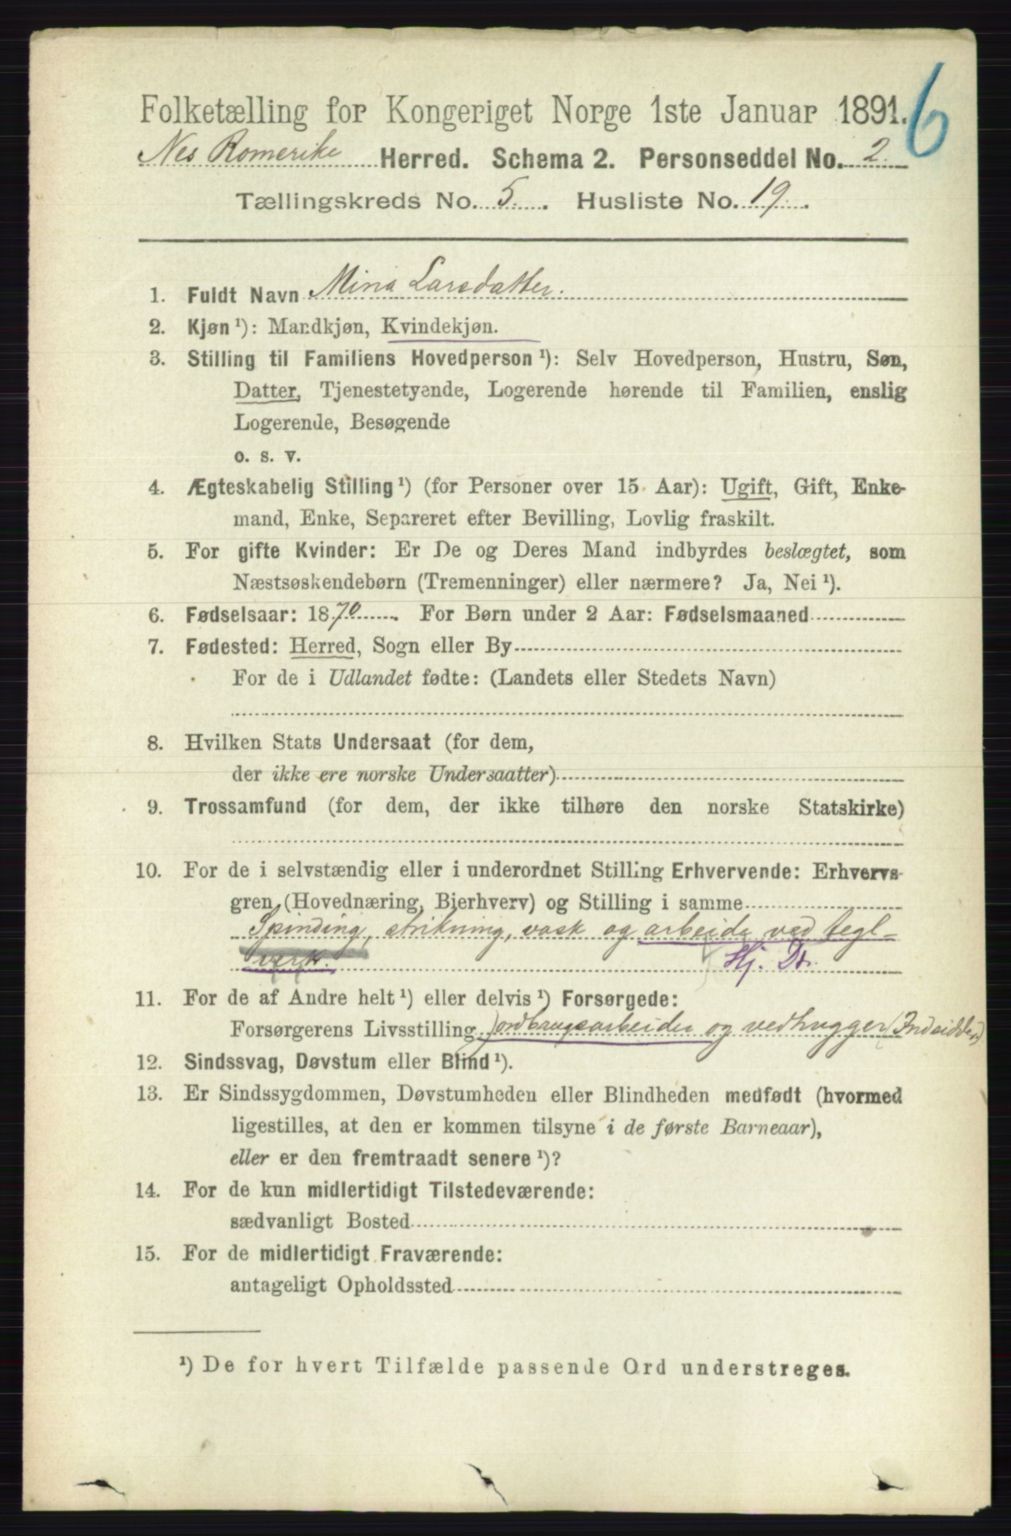 6
Folketælling for Kongeriget Norge 1ste Januar 1891.
Nes Romerike Herred. Schema 2. Personseddel No. 2.
Tællingskreds No. 5. Husliste No. 19.
1. Fuldt Navn Mina Larsdatter.
2. Kjøn ¹): Mandkjøn, Kvindekjøn.
3. Stilling til Familiens Hovedperson ¹): Selv Hovedperson, Hustru, Søn,
Datter, Tjenestetyende, Logerende hørende til Familien, enslig
Logerende, Besøgende
o. s. v.
4. Ægteskabelig Stilling ¹) (for Personer over 15 Aar): Ugift, Gift, Enke-
mand, Enke, Separeret efter Bevilling, Lovlig fraskilt.
5. For gifte Kvinder: Er De og Deres Mand indbyrdes beslægtet, som
Næstsøskendebørn (Tremenninger) eller nærmere? Ja, Nei ¹).
6. Fødselsaar: 1870. For Børn under 2 Aar: Fødselsmaaned
7. Fødested: Herred, Sogn eller By
For de i Udlandet fødte: (Landets eller Stedets Navn)
8. Hvilken Stats Undersaat (for dem,
der ikke ere norske Undersaatter)
9. Trossamfund (for dem, der ikke tilhøre den norske Statskirke)
10. For de i selvstændig eller i underordnet Stilling Erhvervende: Erhvervs-
gren (Hovednæring, Bierhverv) og Stilling i samme
Spinding, strikning, vask og arbeide ved tegl-
verk. Hj. Dt.
11. For de af Andre helt ¹) eller delvis ¹) Forsørgede:
Forsørgerens Livsstilling Jordbrugsarbeider og vedhugger (Indsidder)
12. Sindssvag, Døvstum eller Blind ¹).
13. Er Sindssygdommen, Døvstumheden eller Blindheden medfødt (hvormed
ligestilles, at den er kommen tilsyne i de første Barneaar),
eller er den fremtraadt senere ¹)?
14. For de kun midlertidigt Tilstedeværende:
sædvanligt Bosted
15. For de midlertidigt Fraværende:
antageligt Opholdssted
¹) De for hvert Tilfælde passende Ord understreges.